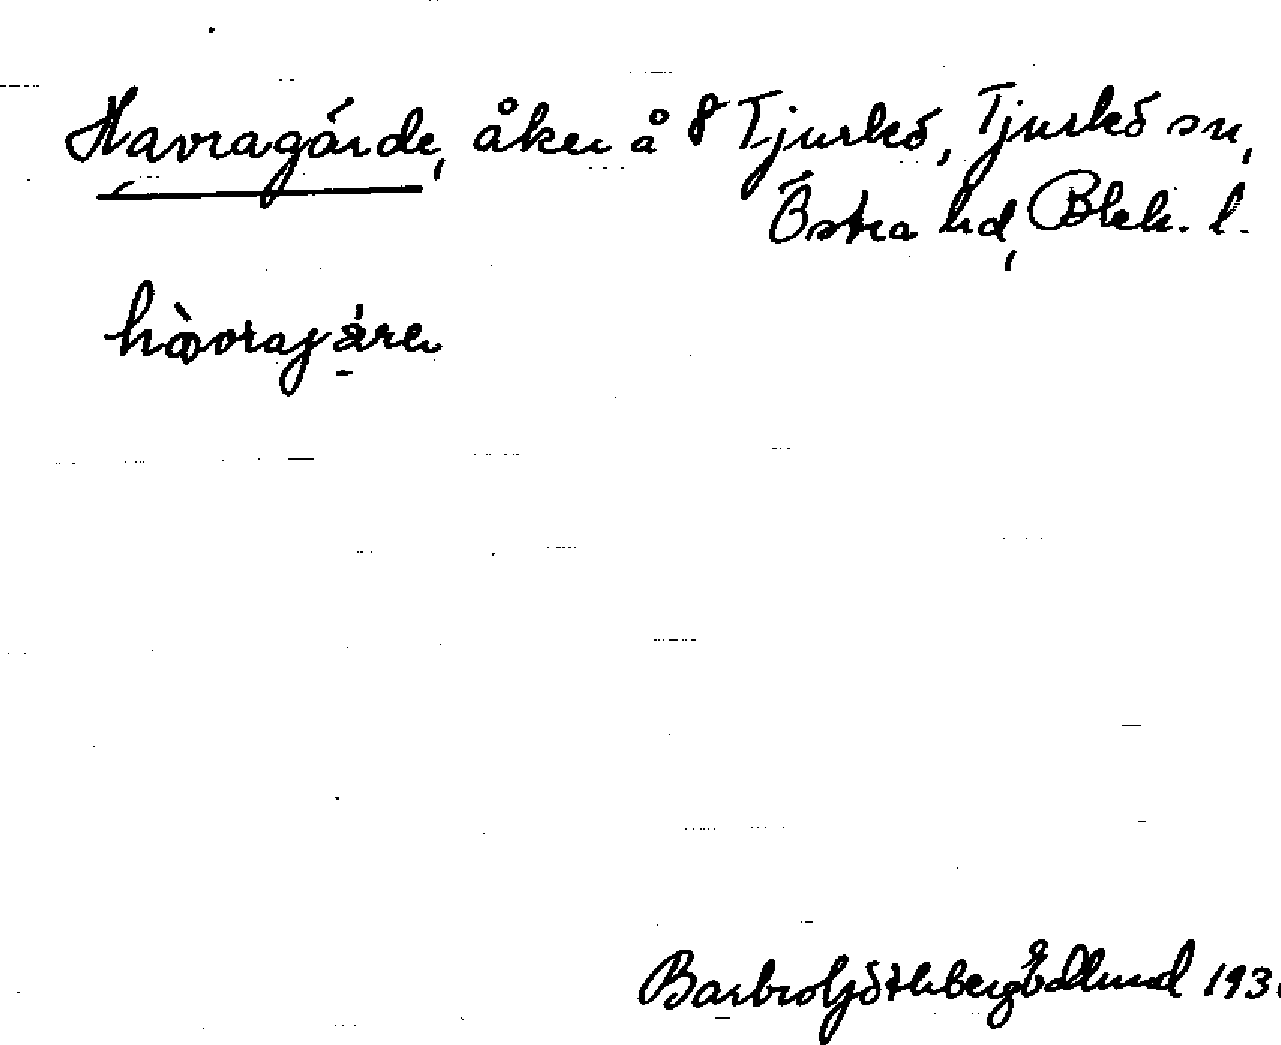 Havragärde, åker å 8 Tjurkö, Tjurkö sn,
Östra hd, Blek. l.
hàvragáren
Barbro Göthberg Edlund 193